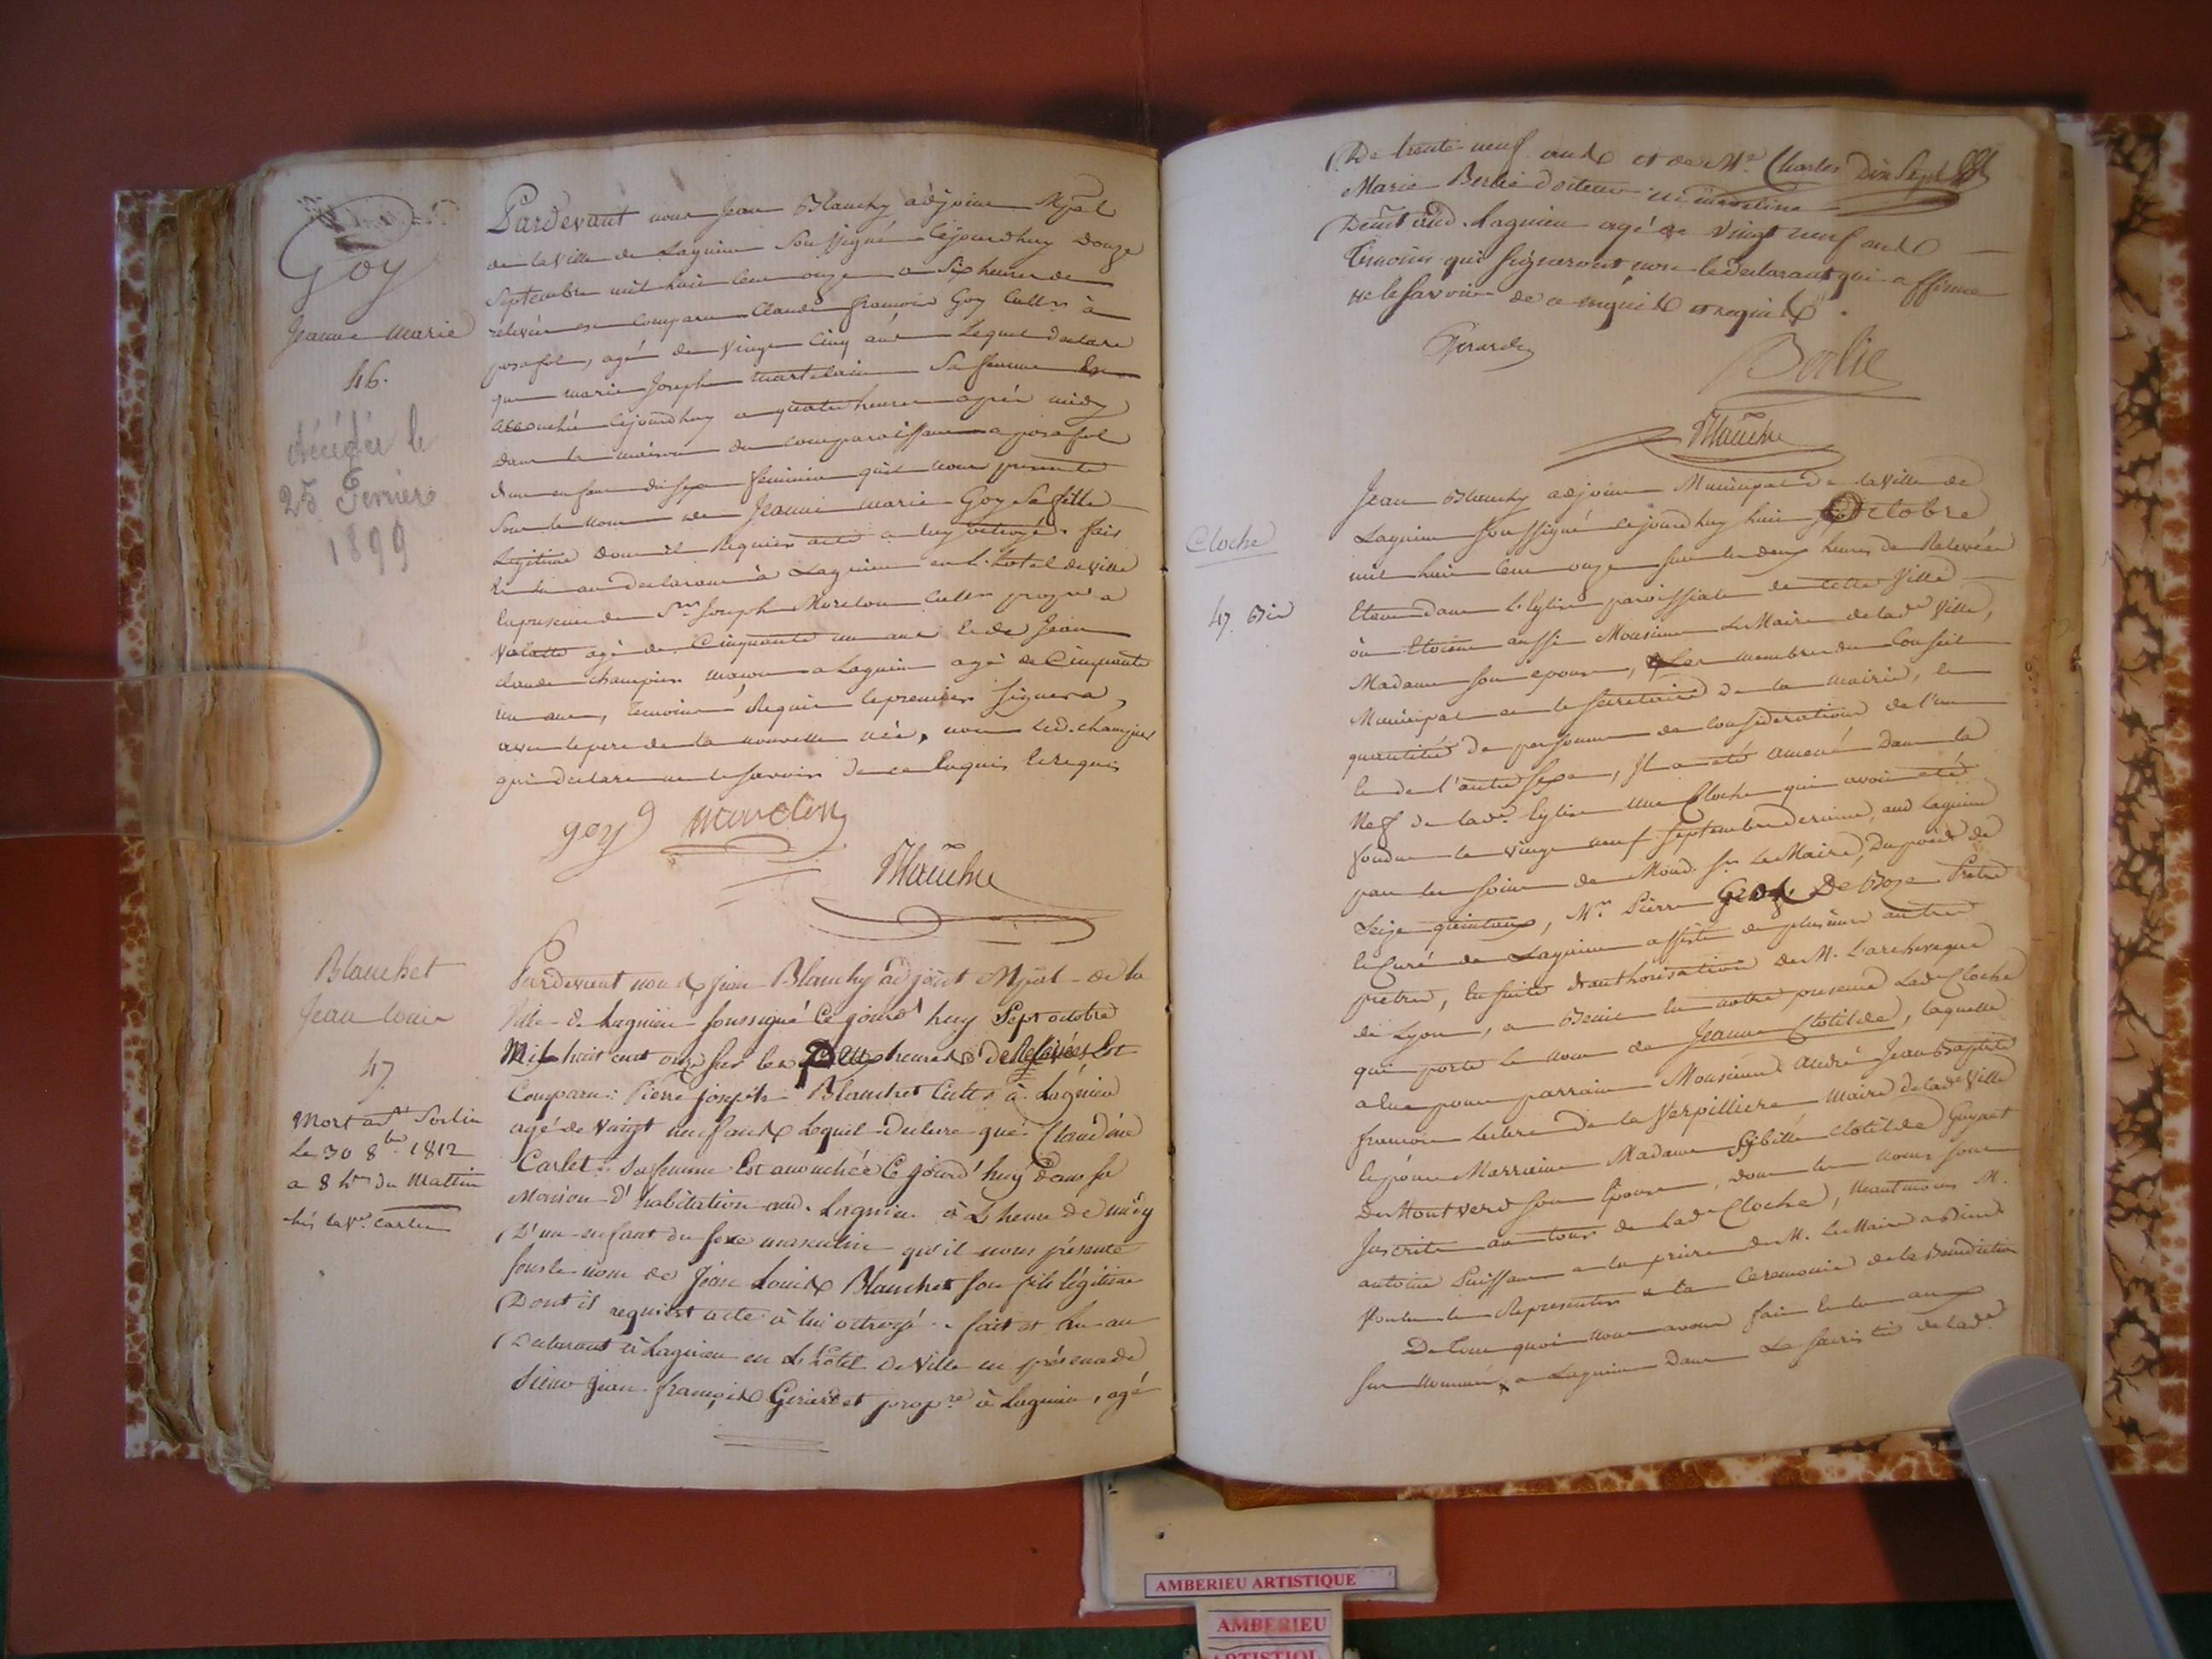 Goy
Jeanne Marie
46.
décédée le
25 Fevrier
1899
Pardevant nous Jean Blanchy adjoint Mpal
de la ville de Lagnieu soussigné cejourdhuy douze
Septembre mil huit cent onze a Six heures de
relevée est comparu Claude françois Goy Cultr à
posafol, agé de vingt cinq ans Lequel declare
que marie Joseph martelain Sa femme
accouchée cejourdhuy a quatre heures après midy
dans la maison du comparoissant a posafol
dun enfant du sexe feminin quil nous presente
Sous le nom de Jeanne Marie Goy Sa fille
legitime dont il Requier acte a luy octroyé. fait
& lu au declarant à Lagnieu en L'hotel de ville
En presence de Sr Joseph Moreton Cultr propre a
agé de Cinquante un ans & de Jean
claude champier maçon a Lagnieu agé de Cinquante
un ans, temoins Requis le premier Signera,
avec le pere de la nouvelle née, non led. champier
qui declare ne le savoir de ce Enquis & requis
goy moreton
Blanchy
Blanchet
Jean Louis
47
Mort a St Sorlin
Le 30 8bre 1812
a 8 hres du Mattin
chés la Ve. Carlet
Pardevant nous Jean Blanchy adjoint Mpal de la
Ville de Lagnieu soussigné Ce jourd'huy Sept octobre
Mil huit cent onze sur les Deux heures de Relevées Est
Comparu Pierre joseph Blanchet Cultr à Lagnieu
agé de vaingt neuf ans Lequel declare que Claudine
Carlet Sa femme Est accouchée Ce jourd'huy dans sa
Maison d'habitation aud. Lagnieu à L'heure de midy
D'un enfant du sexe masculin qu'il nous présente
sous le nom de Jean Louis Blanchet son fils légitime
Dont il requiert acte à lui octroyé. fait et lu au
Déclarant à Lagnieu en L'hôtel De Ville en présence de
Sieur Jean françois Girardet propre à Lagnieu, agé
De trente neuf ans et de Mr Charles
Marie Berlie docteur en medecine
Demt aud. Lagnieu agé de vingt neuf ans
Temoins qui signeront non le declarant qui a affirmé
ne le savoir de ce enquis et requis.
Girardet
Berlie
Blanchy
Cloche
47. Bis
Jean Blanchy adjoint Municipal de la ville de
Lagnieu soussigné cejourdhuy huit Octobre
mil huit cent onze sur les deux heures de Relevée
Etant dans L'Eglise paroissiale de cette Ville
où Etoient aussi Monsieur Le Maire de lade Ville,
Madame son epouse, Les membres du Conseil
Municipal et le secretaire de la mairie, &
quantité de personnes de consideration de l'un
& de l'autre sexe, Il a été amené dans la
Nef de lade Eglise une Cloche qui avoit été
fondue le vingt neuf septembre dernier, aud Lagnieu
par les soins de Mond. Sr Le Maire, du poid de
Seize quintaux, Mr Pierre De Boze Pretre
& Curé de Lagnieu assisté de plusieurs autres
pretres, Ensuite d'authorisation de M. L'archeveque
de Lyon, a Benit En notre presence Lade Cloche
qui porte Le nom de Jeanne Clotilde, laquelle
a Eue pour parrain Monsieur André Jean Baptiste
françois Leclerc de la Verpilliere Maire de lade Ville
& pour Marraine Madame Sibille Clotilde Guynet
de Montverd son Epouse, dont les noms sont
Inscrits au tour de lade Cloche, neantmoins M.
antoine Puissant a la priere de M. Le Maire a Bien
Voulu le Representer a la Ceremonie de la Benediction
De tout quoi nous avons fait & lu aux
sus nommés a Lagnieu Dans La sacristie de lade
AMBERIEU ARTISTIQUE
AMBERIEU